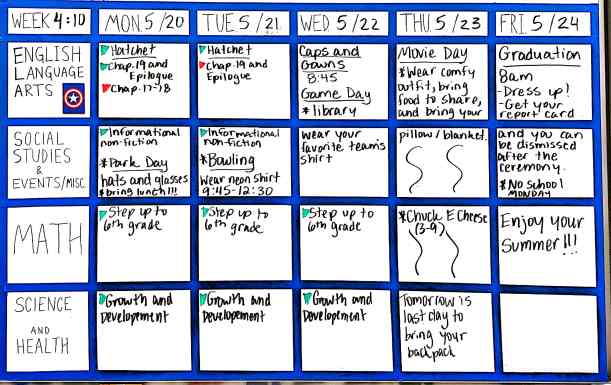 WEEK 4:10
MON. 5/20
TUE. 5/21
WED. 5/22
THU. 5/23
FRI. 5/24
ENGLISH
LANGUAGE
ARTS
Hatchet
Chap. 19 and
Epilogue
Chap. 17-18
Hatchet
Chap. 19 and
Epilogue
Caps and
Gowns
8:45
Game Day
* library
Movie Day
*Wear comfy
outfit, bring
food to share,
and bring your
Graduation
8am
-Dress up!
-Get your
report card
SOCIAL
STUDIES
&
EVENTS/MISC.
Informational
non-fiction
*Park Day
hats and glasses
*bring lunch!!!
Informational
non-fiction
*Bowling
Wear neon shirt
9:45-12:30
wear your
favorite team's
shirt
pillow/blanket.
and you can
be dismissed
after the
ceremony.
*No school
MONDAY
MATH
Step up to
6th grade
Step up to
6th grade
Step up to
6th grade
*Chuck E Cheese
(3-9)
Enjoy your
Summer!!!
SCIENCE
AND
HEALTH
Growth and
Developement
Growth and
Developement
Growth and
Developement
Tomorrow is
last day to
bring your
backpack